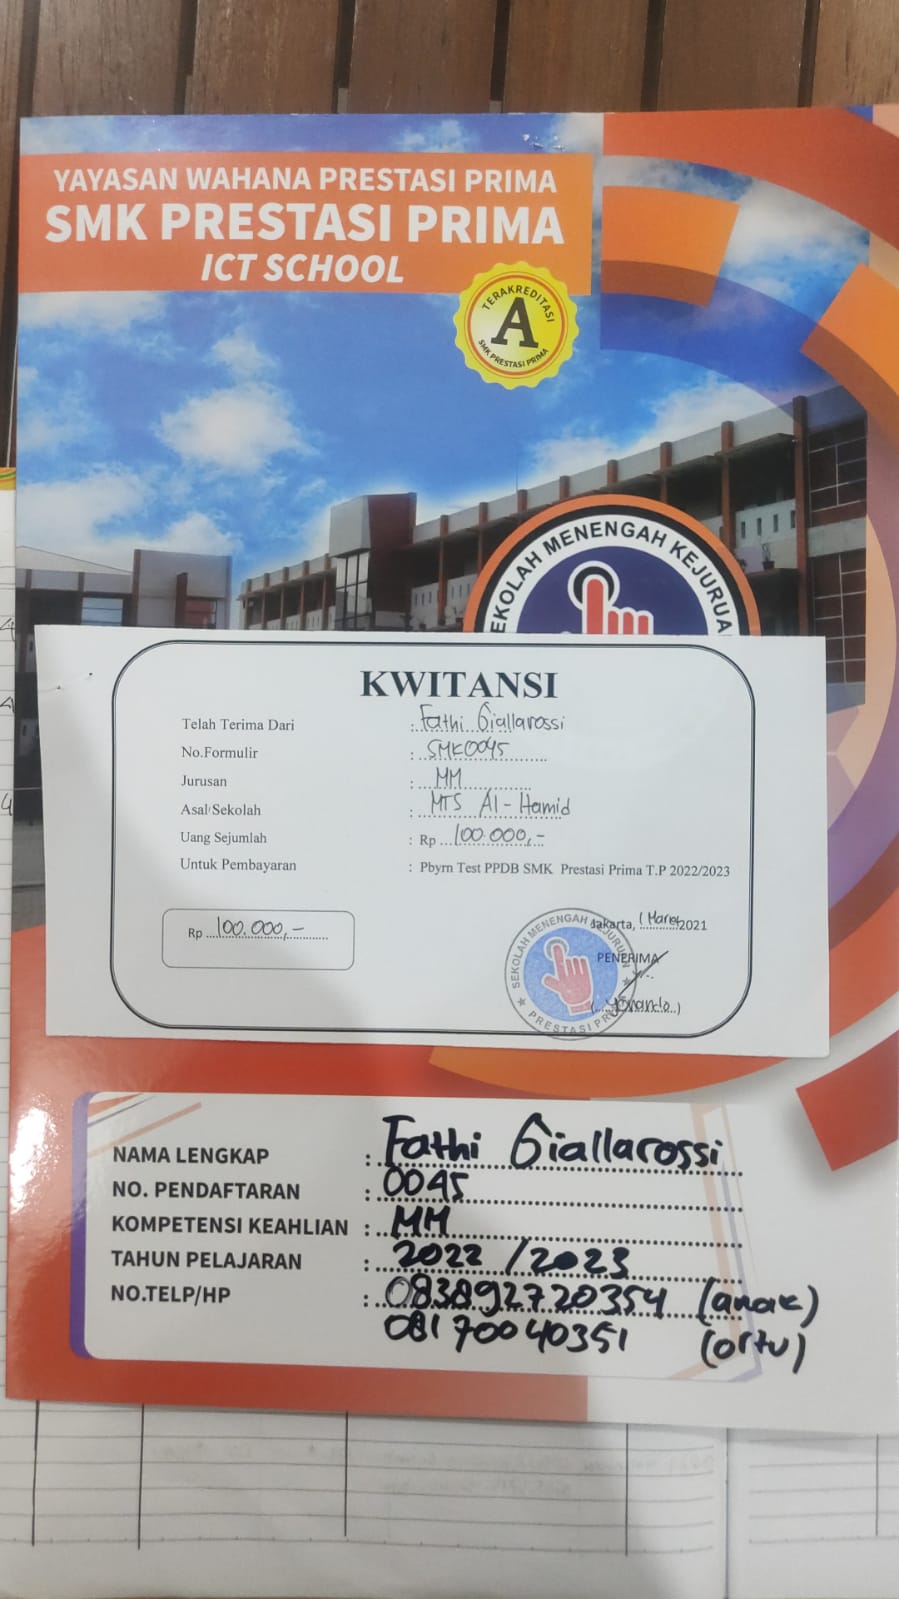 YAYASAN WAHANA PRESTASI PRIMA
SMK PRESTASI PRIMA
ICT SCHOOL
TERAKREDITASI
A
SMK PRESTASI PRIMA
EKOLAH MENENGAH KEJURUA
KWITANSI
Telah Terima Dari : Fathi Giallarossi
No.Formulir : SMK0045
Jurusan : MM
Asal Sekolah : MTS Al-Hamid
Uang Sejumlah : Rp 100.000,-
Untuk Pembayaran : Pbyrn Test PPDB SMK Prestasi Prima T.P 2022/2023
Rp 100.000,-
Jakarta, 1 Maret 2021
PENERIMA
SEKOLAH MENENGAH KEJURUAN
PRESTASI PRIMA
NAMA LENGKAP : Fathi Giallarossi
NO. PENDAFTARAN : 0045
KOMPETENSI KEAHLIAN : MM
TAHUN PELAJARAN : 2022 /2023
NO.TELP/HP : 083892720354 (anak)
08170040351 (ortu)